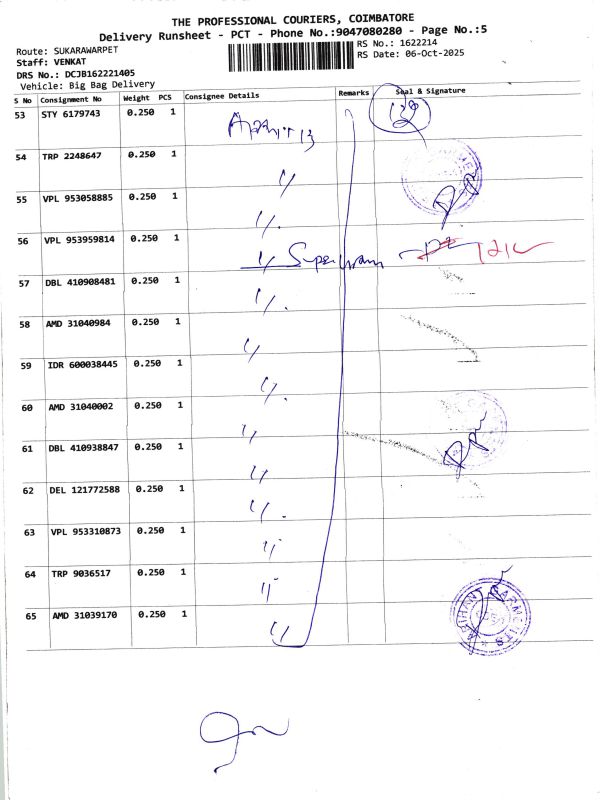 THE PROFESSIONAL COURIERS, COIMBATORE
Delivery Runsheet - PCT - Phone No.:9047080280 - Page No.:5
Route: SUKARAWARPET
RS No.: 1622214
Staff: VENKAT
RS Date: 06-Oct-2025
DRS No.: DCJB162221405
Vehicle: Big Bag Delivery
S No Consignment No Weight PCS Consignee Details Remarks Seal & Signature
53 STY 6179743 0.250 1
54 TRP 2248647 0.250 1 〃
55 VPL 953058885 0.250 1 〃
56 VPL 953959814 0.250 1 〃
57 DBL 410908481 0.250 1 〃
58 AMD 31040984 0.250 1 〃
59 IDR 600038445 0.250 1 〃
60 AMD 31040002 0.250 1 〃
61 DBL 410938847 0.250 1 〃
62 DEL 121772588 0.250 1 〃
63 VPL 953310873 0.250 1 〃
64 TRP 9036517 0.250 1 〃
65 AMD 31039170 0.250 1 〃